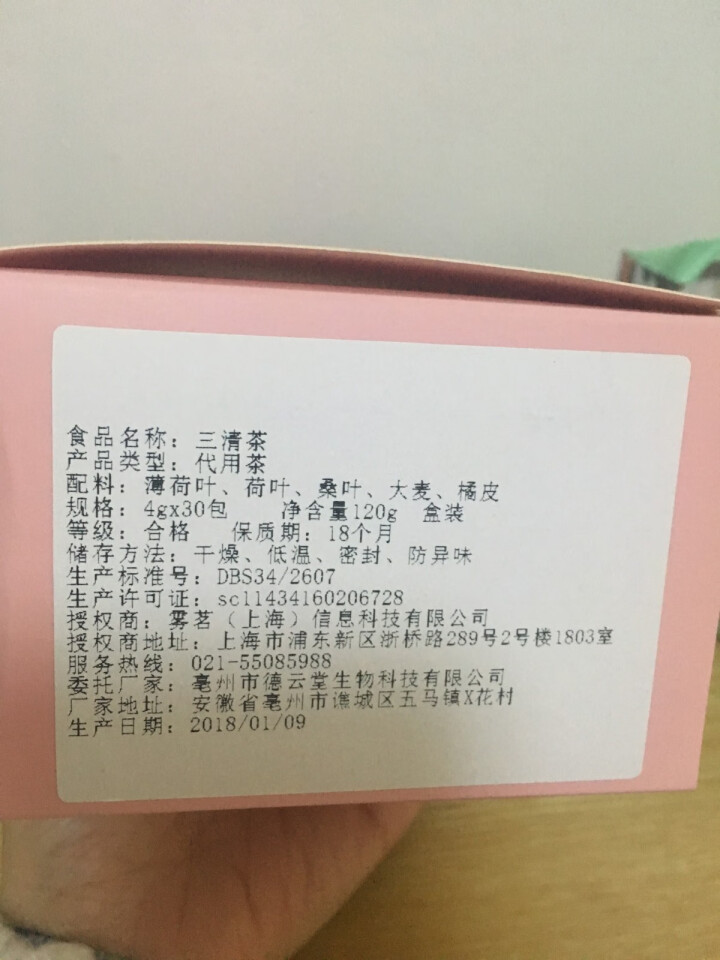 食品名称：三清茶
产品类型：代用茶
配料：薄荷叶、荷叶、桑叶、大麦、橘皮
规格：4gx30包 净含量120g 盒装
等级：合格 保质期：18个月
储存方法：干燥、低温、密封、防异味
生产标准号：DBS34/2607
生产许可证：sc11434160206728
授权商：雾茗（上海）信息科技有限公司
授权商地址：上海市浦东新区浙桥路289号2号楼1803室
服务热线：021-55085988
委托厂家：亳州市德云堂生物科技有限公司
厂家地址：安徽省亳州市谯城区五马镇X花村
生产日期：2018/01/09